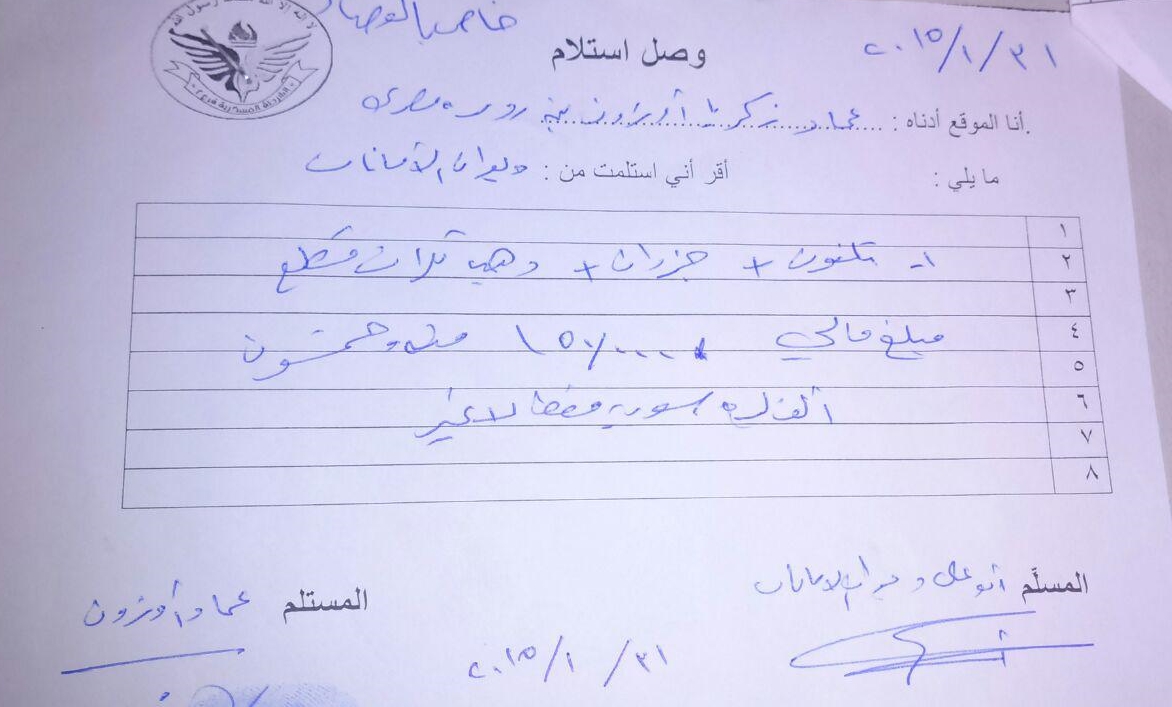 لا إله إلا الله محمد رسول الله
خاص بالوصل
٢٠١٥/١/٣١
وصل استلام
أنا الموقع أدناه : عماد زكريا أوزون
أقر أني استلمت من : ديوان الأمانات
ما يلي :
١
٢ ١- تلفون + جزدان + ذهب ثلاث قطع
٣
٤ مبلغ مالي ١٥٠/٠٠٠ مئة وخمسون
٥
٦ ألف ليرة سورية فقط لا غير
٧
٨
المسلَّم أبو علي ديوان الأمانات
المستلم عماد أوزون
٢٠١٥/١/٣١